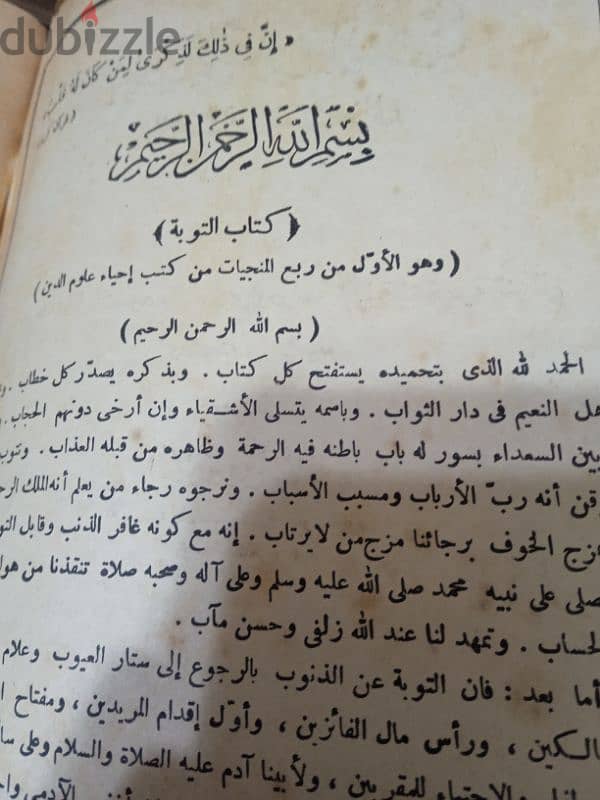 dubizzle
« إنّ فى ذٰلِكَ لَذِكْرَىٰ لِمَنْ كَانَ لَهُ
بِسْمِ اللَّهِ الرَّحْمَنِ الرَّحِيمِ
﴿ كتاب التوبة ﴾
( وهو الأوّل من ربع المنجيات من كتب إحياء علوم الدين )
( بسم الله الرحمن الرحيم )
الحمد لله الذى بتحميده يستفتح كل كتاب . وبذكره يصدّر كل خطاب .
هل النعيم فى دار الثواب . وباسمه يتسلى الأشقياء وإن أرخى دونهم الحجاب .
بين السعداء بسور له باب باطنه فيه الرحمة وظاهره من قبله العذاب . ونتوب
وقن أنه ربّ الأرباب ومسبب الأسباب . ونرجوه رجاء من يعلم أنه الملك
مزج الخوف برجائنا مزج من لا يرتاب . إنه مع كونه غافر الذنب وقابل
صلى على نبيه محمد صلى الله عليه وسلم وعلى آله وصحبه صلاة تنقذنا من هول
الحساب . وتمهد لنا عند الله زلفى وحسن مآب .
أما بعد : فان التوبة عن الذنوب بالرجوع إلى ستار العيوب وعلام
الكين ، ورأس مال الفائزين ، وأوّل إقدام المريدين ، ومفتاح
والاجتباء للمقربين ، ولأبينا آدم عليه الصلاة والسلام وعلى
الآدمى